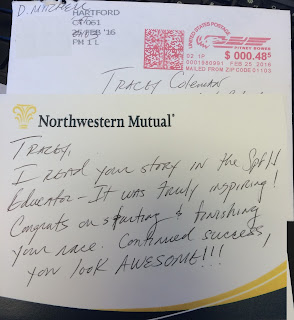 D. Mitchell
HARTFORD
CT 061
25 FEB '16
PM 1 L
UNITED STATES POSTAGE
PITNEY BOWES
02 1P
$ 000.48⁵
0001980991 FEB 25 2016
MAILED FROM ZIP CODE 01103
Tracey Coleman
Northwestern Mutual®
Tracey,
I read your story in the Spfld
Educator - It was truly inspiring!
Congrats on starting & finishing
your race. Continued success,
you look AWESOME!!!